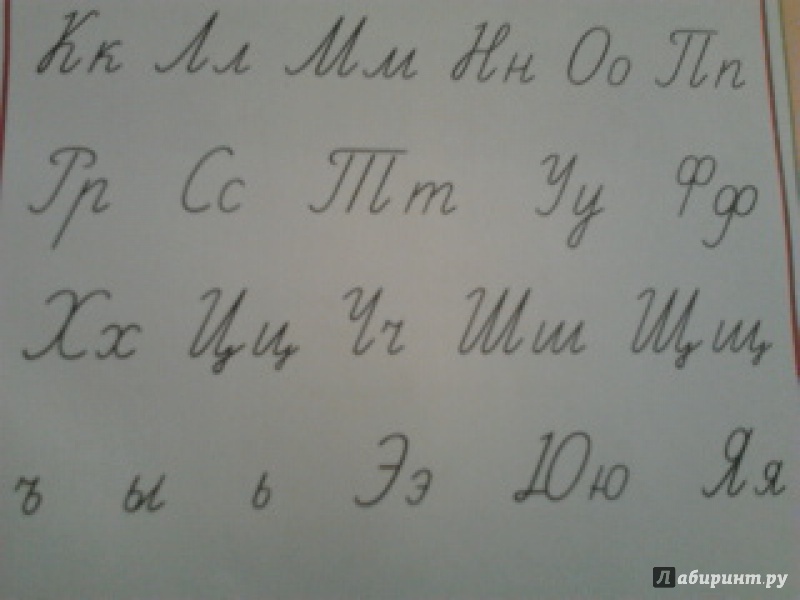 Кк Лл Мм Нн Оо Пп
Рр Сс Тт Уу Фф
Хх Цц Чч Шш Щщ
ъ ы ь Ээ Юю Яя
Лабиринт.ру